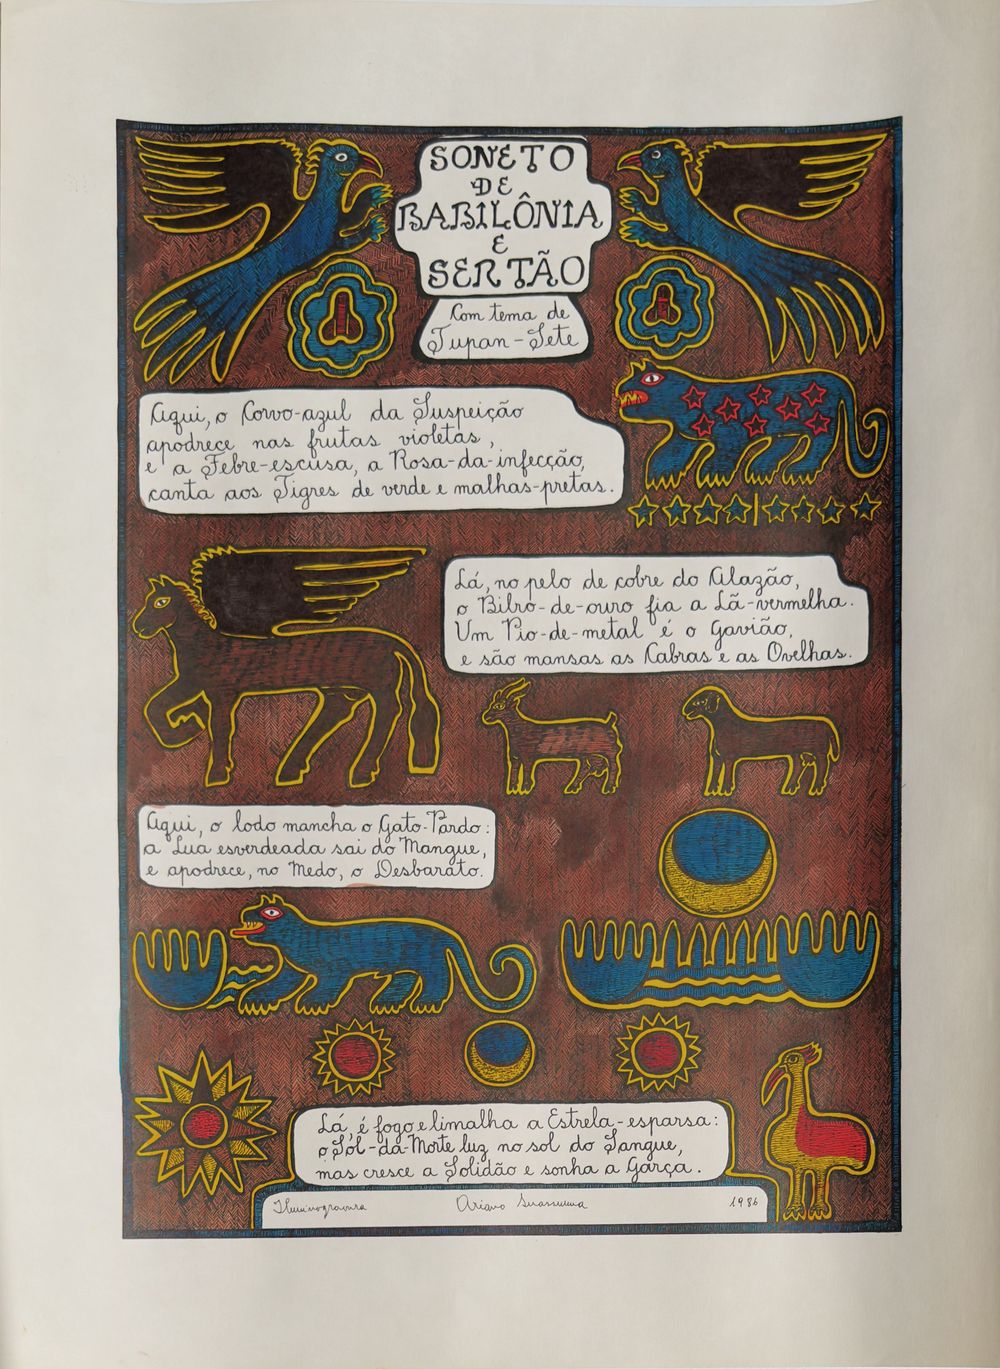 SONETO
DE
BABILÔNIA
E
SERTÃO
Com tema de
Tupan-Sete
Aqui, o Corvo-azul da Suspeição
apodrece nas frutas violetas,
e a Febre-escusa, a Rosa-da-infecção,
canta aos Tigres de verde e malhas-pretas.
Lá, no pelo de cobre do Alazão,
o Bilro-de-ouro fia a Lã-vermelha.
Um Pio-de-metal é o Gavião,
e são mansas as Cabras e as Ovelhas.
Aqui, o lodo mancha o Gato-Pardo:
a Lua esverdeada sai do Mangue,
e apodrece, no Medo, o Desbarato.
Lá, é fogo e limalha a Estrela-esparsa:
o Sol-da-Morte luz no sol do Sangue,
mas cresce a Solidão e sonha a Garça.
Iluminogravura Ariano Suassuna 1986